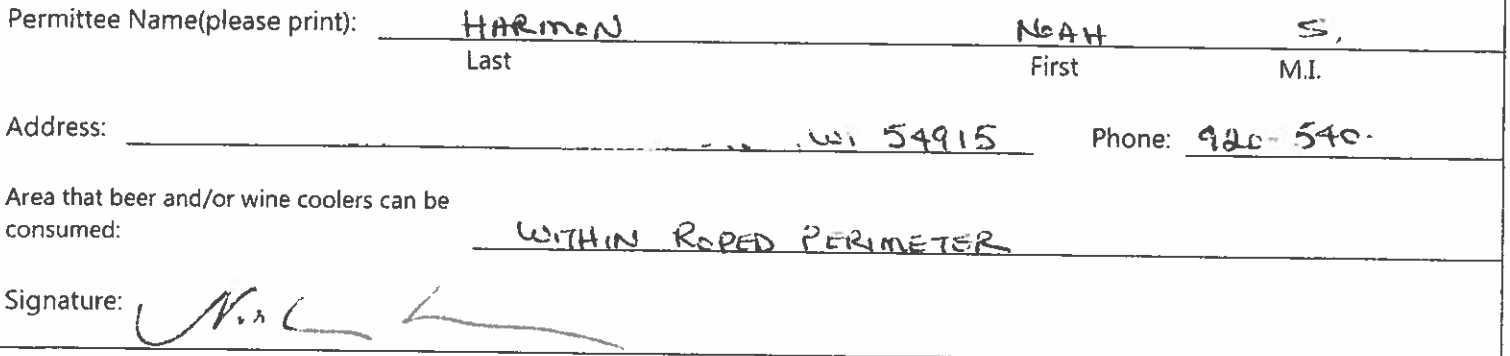 Permittee Name(please print): HARMON NOAH S.
Last First M.I.
Address: WI 54915 Phone: 920-540-
Area that beer and/or wine coolers can be
consumed: WITHIN ROPED PERIMETER
Signature: